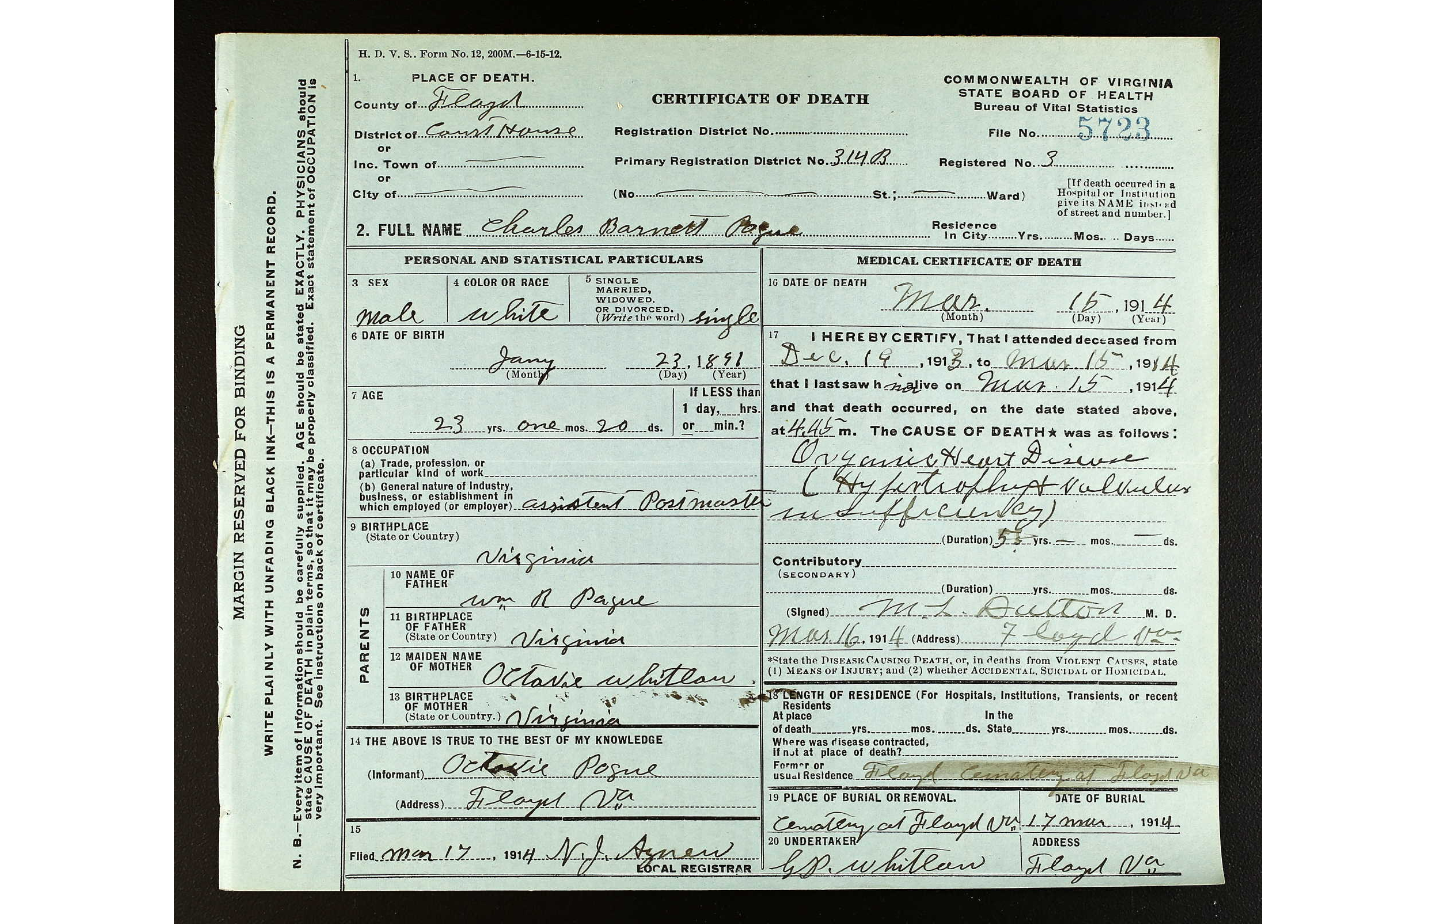 H. D. V. S.. Form No. 12, 200M.—6-15-12.
1. PLACE OF DEATH.
County of Floyd
District of Court House
or
Inc. Town of
or
City of
CERTIFICATE OF DEATH
Registration District No.
Primary Registration District No. 314B
(No. St.; Ward)
COMMONWEALTH OF VIRGINIA
STATE BOARD OF HEALTH
Bureau of Vital Statistics
File No. 5723
Registered No. 3
[If death occured in a
Hospital or Institution
give its NAME instead
of street and number.]
2. FULL NAME Charles Barnett Pogue
Residence
In City Yrs. Mos. Days
PERSONAL AND STATISTICAL PARTICULARS
3 SEX
male
4 COLOR OR RACE
white
5 SINGLE
MARRIED,
WIDOWED.
OR DIVORCED.
(Write the word) single
6 DATE OF BIRTH
Jany 23, 1891
(Month) (Day) (Year)
7 AGE
23 yrs. one mos. 20 ds.
If LESS than
1 day, hrs.
or min.?
8 OCCUPATION
(a) Trade, profession, or
particular kind of work
(b) General nature of industry,
business, or establishment in
which employed (or employer) assistent Postmaster
9 BIRTHPLACE
(State or Country)
Virginia
PARENTS
10 NAME OF
FATHER
Wm R Pogue
11 BIRTHPLACE
OF FATHER
(State or Country) Virginia
12 MAIDEN NAME
OF MOTHER
Octavie Whitlow.
13 BIRTHPLACE
OF MOTHER
(State or Country.) Virginia
14 THE ABOVE IS TRUE TO THE BEST OF MY KNOWLEDGE
(Informant) Octavie Pogue
(Address) Floyd Va
15
Filed Mar 17, 1914 N. J. Agnew
LOCAL REGISTRAR
MEDICAL CERTIFICATE OF DEATH
16 DATE OF DEATH
Mar. 15, 1914
(Month) (Day) (Year)
17 I HEREBY CERTIFY, That I attended deceased from
Dec. 19, 1913, to Mar 15 1914
that I last saw him alive on Mar. 15, 1914
and that death occurred, on the date stated above,
at 4.45 m. The CAUSE OF DEATH★ was as follows:
Organic Heart Disease
(Hypertrophy & Valvular
insufficiency)
(Duration) 5 yrs. — mos. — ds.
Contributory
(SECONDARY)
(Duration) yrs. mos. ds.
(Signed) M. L. Dutton M. D.
Mar 16, 1914 (Address) Floyd Va
*State the DISEASE CAUSING DEATH, or, in deaths from VIOLENT CAUSES, state
(1) MEANS OF INJURY; and (2) whether ACCIDENTAL, SUICIDAL or HOMICIDAL.
18 LENGTH OF RESIDENCE (For Hospitals, Institutions, Transients, or recent
Residents
At place In the
of death yrs. mos. ds. State yrs. mos. ds.
Where was disease contracted,
if not at place of death?
Former or
usual Residence Floyd Cematery at Floyd Va
19 PLACE OF BURIAL OR REMOVAL.
Cematery at Floyd Va
DATE OF BURIAL
17 mar, 1914
20 UNDERTAKER
G. P. Whitlow
ADDRESS
Floyd Va
MARGIN RESERVED FOR BINDING
WRITE PLAINLY WITH UNFADING BLACK INK—THIS IS A PERMANENT RECORD.
N. B.—Every item of information should be carefully supplied. AGE should be stated EXACTLY. PHYSICIANS should
state CAUSE OF DEATH in plain terms, so that it may be properly classified. Exact statement of OCCUPATION is
very important. See instructions on back of certificate.